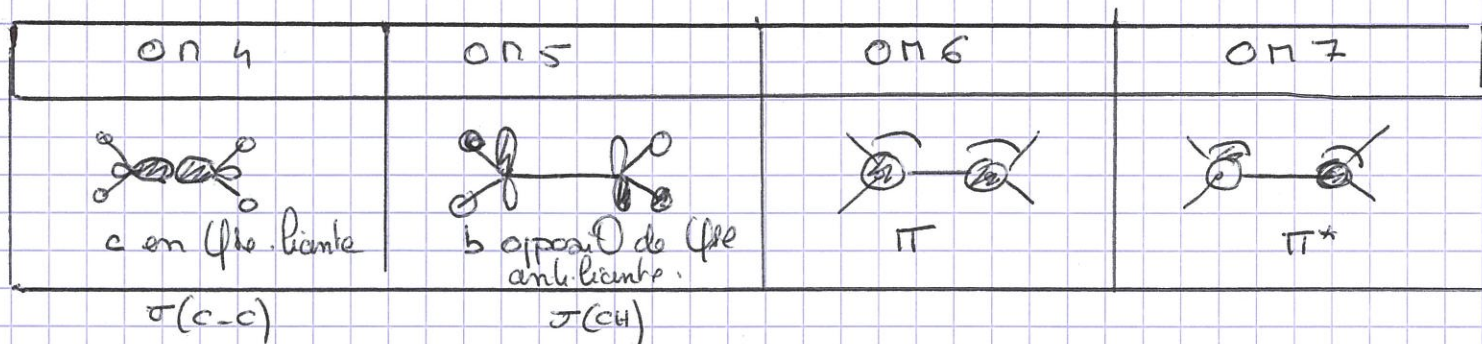 OM 4 OM 5 OM 6 OM 7
c en φse. liante b opposit° de φse π π*
antiliante.
σ(C-C) σ(CH)